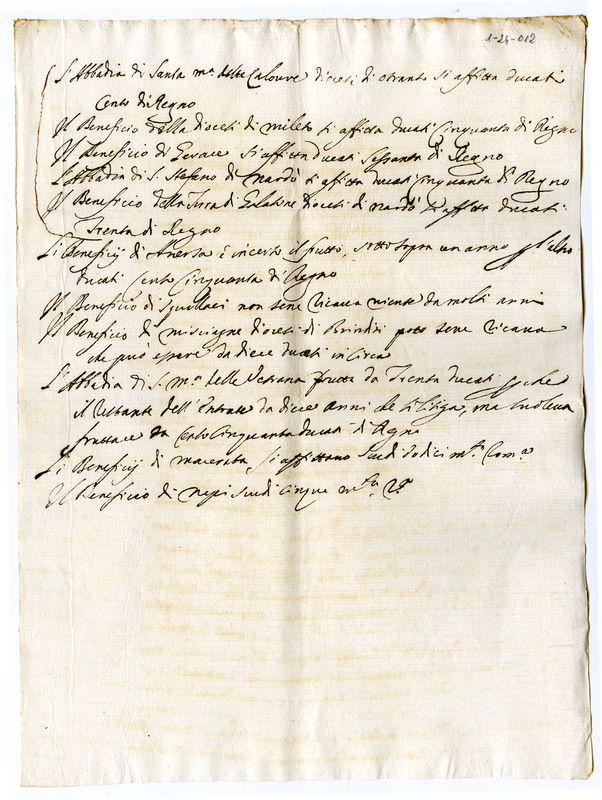 1-24-012
L'Abbadia di Santa m.a delle Calouve diocesi di otranto si affitta ducati
Cento di Regno
Il Beneficio della diocesi di mileto si affitta ducati Cinquanta di Regno
Il Beneficio di Gerace si affitta ducati Sessanta di Regno
L'Abbadia di S. Stefano di Nardò si affitta ducati Cinquanta di Regno
Il Beneficio della Terra di Galatone diocesi di nardò si affitta ducati
Trenta di Regno
Li Beneficij di Aversa è incerto il frutto, sotto sopra un anno l'altro
ducati Cento Cinquanta di Regno
Il Beneficio di Squillaci non sene ricava niente da molti anni
Il Beneficio di misciagne diocesi di Brindisi poco sene ricava
che può essere da diece ducati in Circa
L'Abbadia di S. m.a delle Vetrana frutta da Trenta ducati che
il restante dell'Entrate da diece anni che si litiga, ma soleva
fruttare da Cento Cinquanta ducati di Regno
Li Beneficij di macerata, si affittano Scudi dodici m.ta Rom.a
Il Beneficio di nepi scudi Cinque m.ta R.a